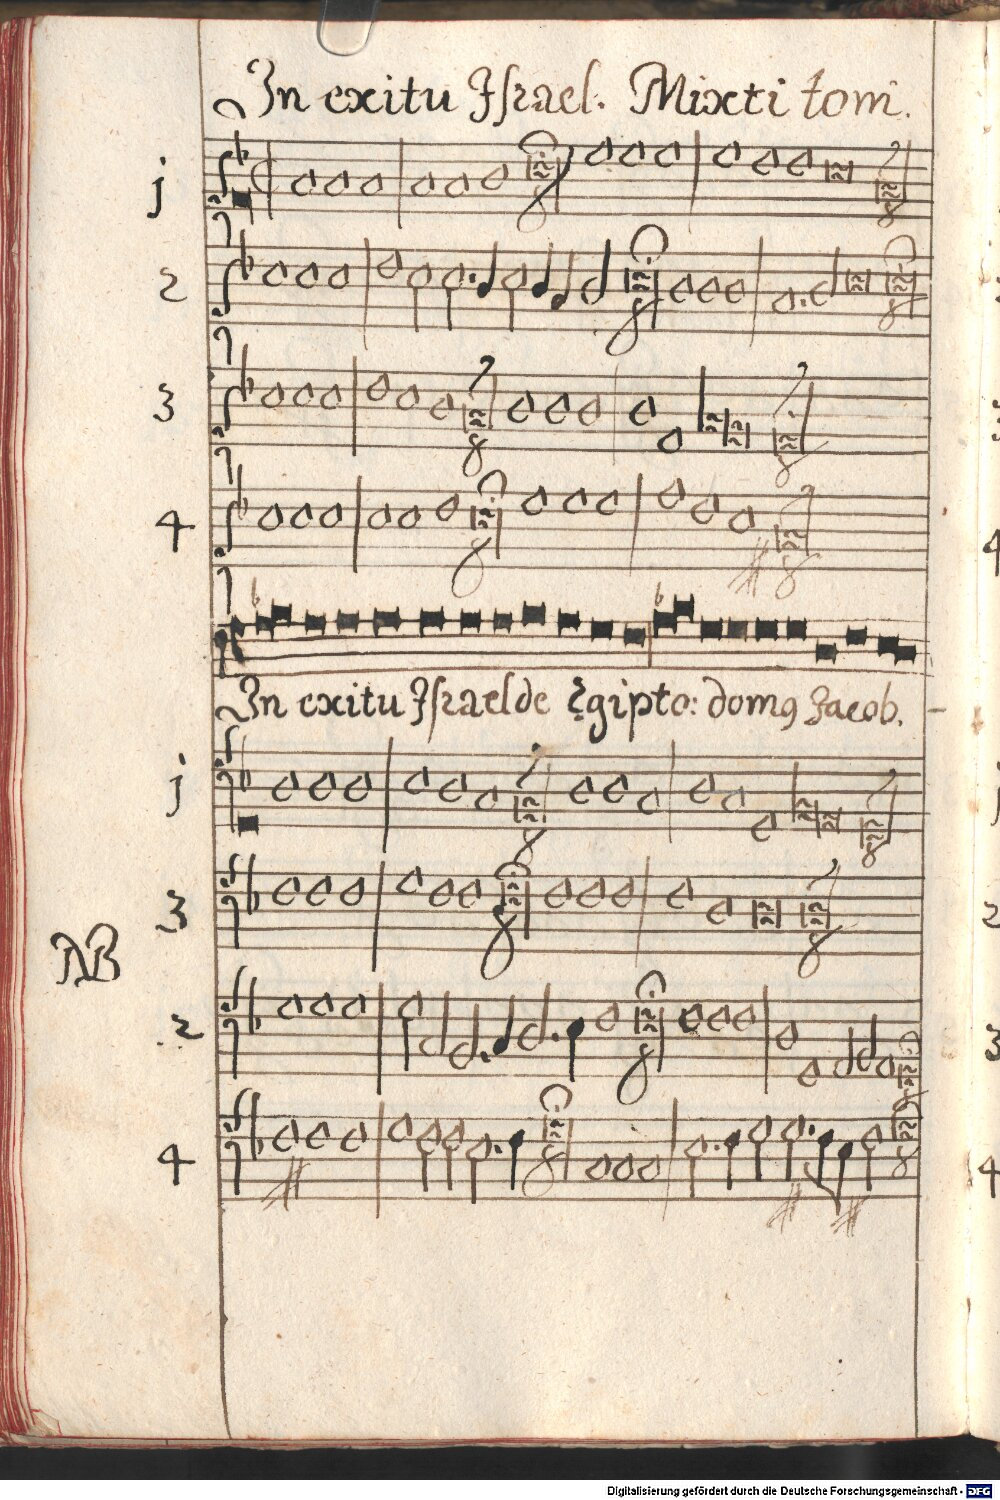 In exitu Israel. Mixti toni.
j
2
3
4
In exitu Israel de Egipto: domꝰ Jacob.
j
3
NB
2
4
Digitalisierung gefördert durch die Deutsche Forschungsgemeinschaft - DFG